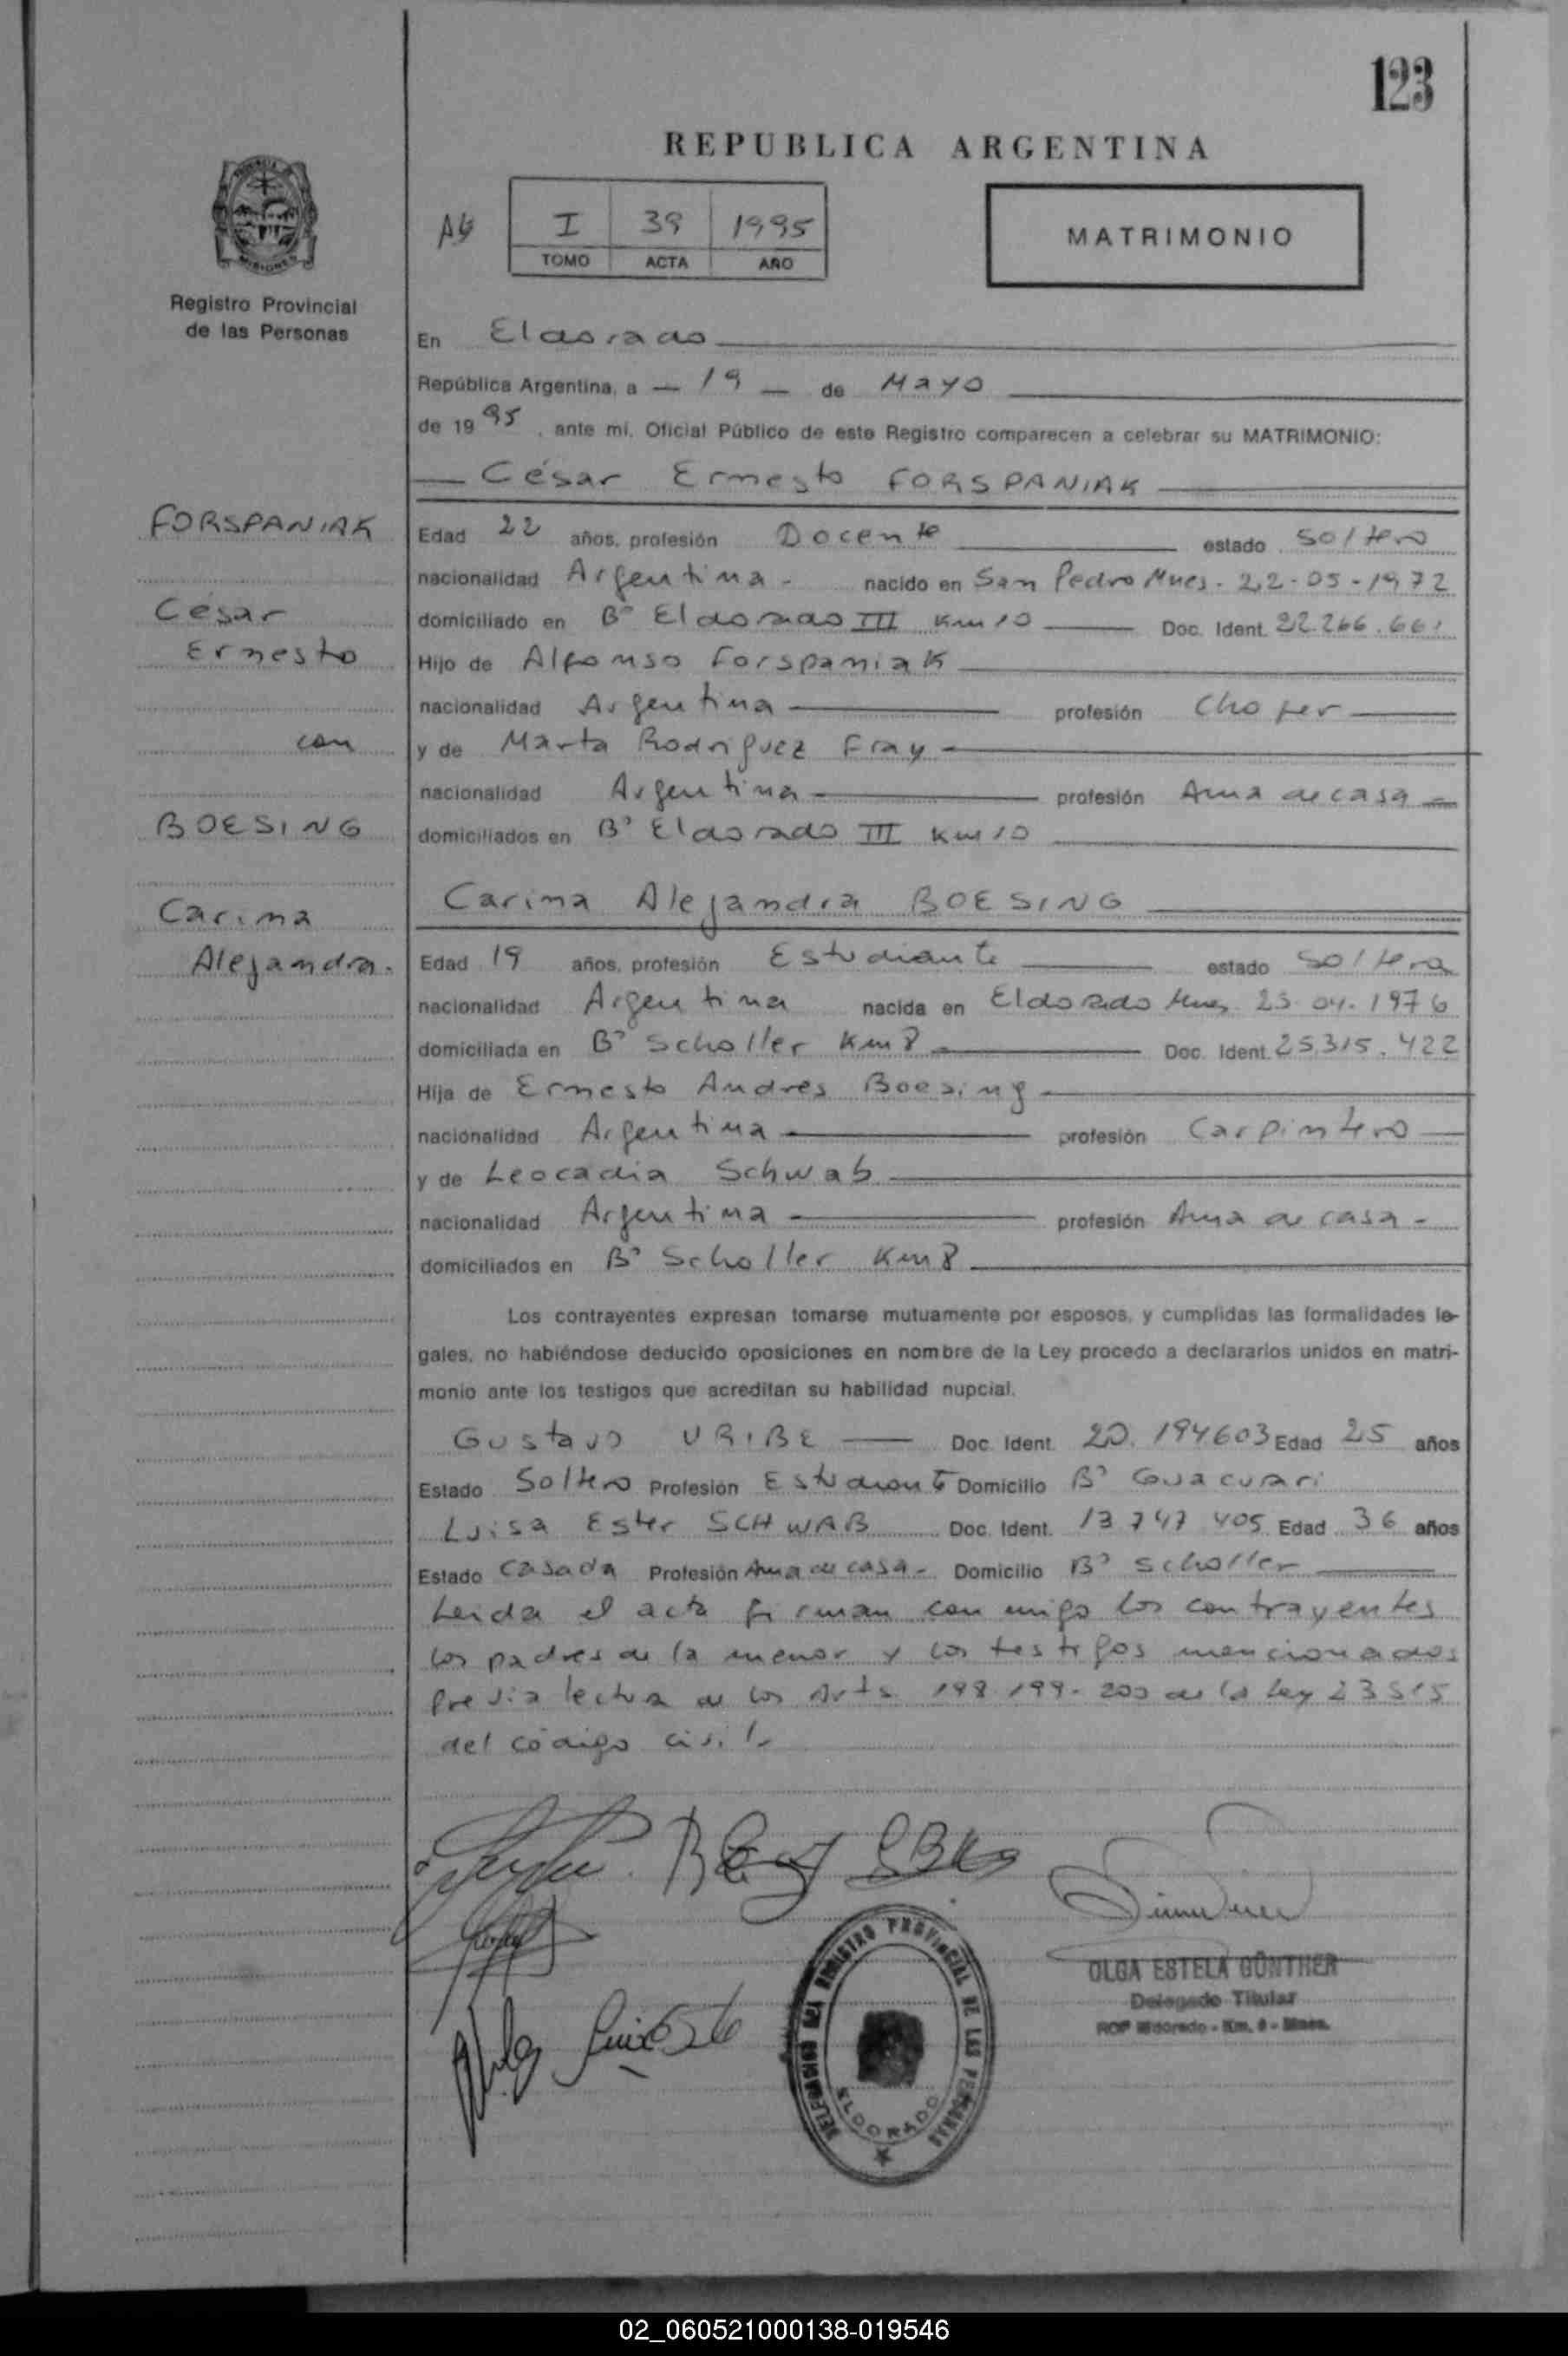 123
REPUBLICA ARGENTINA
I 39 1995
TOMO ACTA AÑO
MATRIMONIO
Registro Provincial
de las Personas
En Eldorado
República Argentina, a — 19 — de Mayo
de 1995, ante mí, Oficial Público de este Registro comparecen a celebrar su MATRIMONIO:
— César Ernesto FORSPANIAK
FORSPANIAK
César
Ernesto
con
BOESING
Carina
Alejandra.
Edad 22 años, profesión Docente estado soltero
nacionalidad Argentina - nacido en San Pedro Mnes. 22-05-1972
domiciliado en B° Eldorado III Km 10 — Doc. Ident. 22.266.661
Hijo de Alfonso Forspaniak
nacionalidad Argentina — profesión Chofer —
y de Marta Rodriguez Fray -
nacionalidad Argentina — profesión Ama de casa -
domiciliados en B° Eldorado III Km 10
Carina Alejandra BOESING
Edad 19 años, profesión Estudiante estado soltera
nacionalidad Argentina nacida en Eldorado Mnes. 04-1976
domiciliada en B° Scholler Km 8 — Doc. Ident. 25.315.422
Hija de Ernesto Andres Boesing
nacionalidad Argentina — profesión Carpintero —
y de Leocadia Schwab
nacionalidad Argentina — profesión Ama de casa -
domiciliados en B° Scholler Km 8
Los contrayentes expresan tomarse mutuamente por esposos, y cumplidas las formalidades le-
gales, no habiéndose deducido oposiciones en nombre de la Ley procedo a declararlos unidos en matri-
monio ante los testigos que acreditan su habilidad nupcial.
Gustavo URIBE — Doc. Ident. 20.194603 Edad 25 años
Estado Soltero Profesión Estudiante Domicilio B° Guacurari
Luisa Ester SCHWAB Doc. Ident. 13 747 405 Edad 36 años
Estado Casada Profesión Ama de casa - Domicilio B° Scholler
Leida el acta firman con migo los contrayentes
los padres de la menor y los testigos mencionados
previa lectura de los Arts. 198-199-200 de la Ley 23515
del código civil.
OLGA ESTELA GÜNTHER
Delegado Titular
DELEGACION DEL REGISTRO PROVINCIAL DE LAS PERSONAS
ELDORADO
02_060521000138-019546